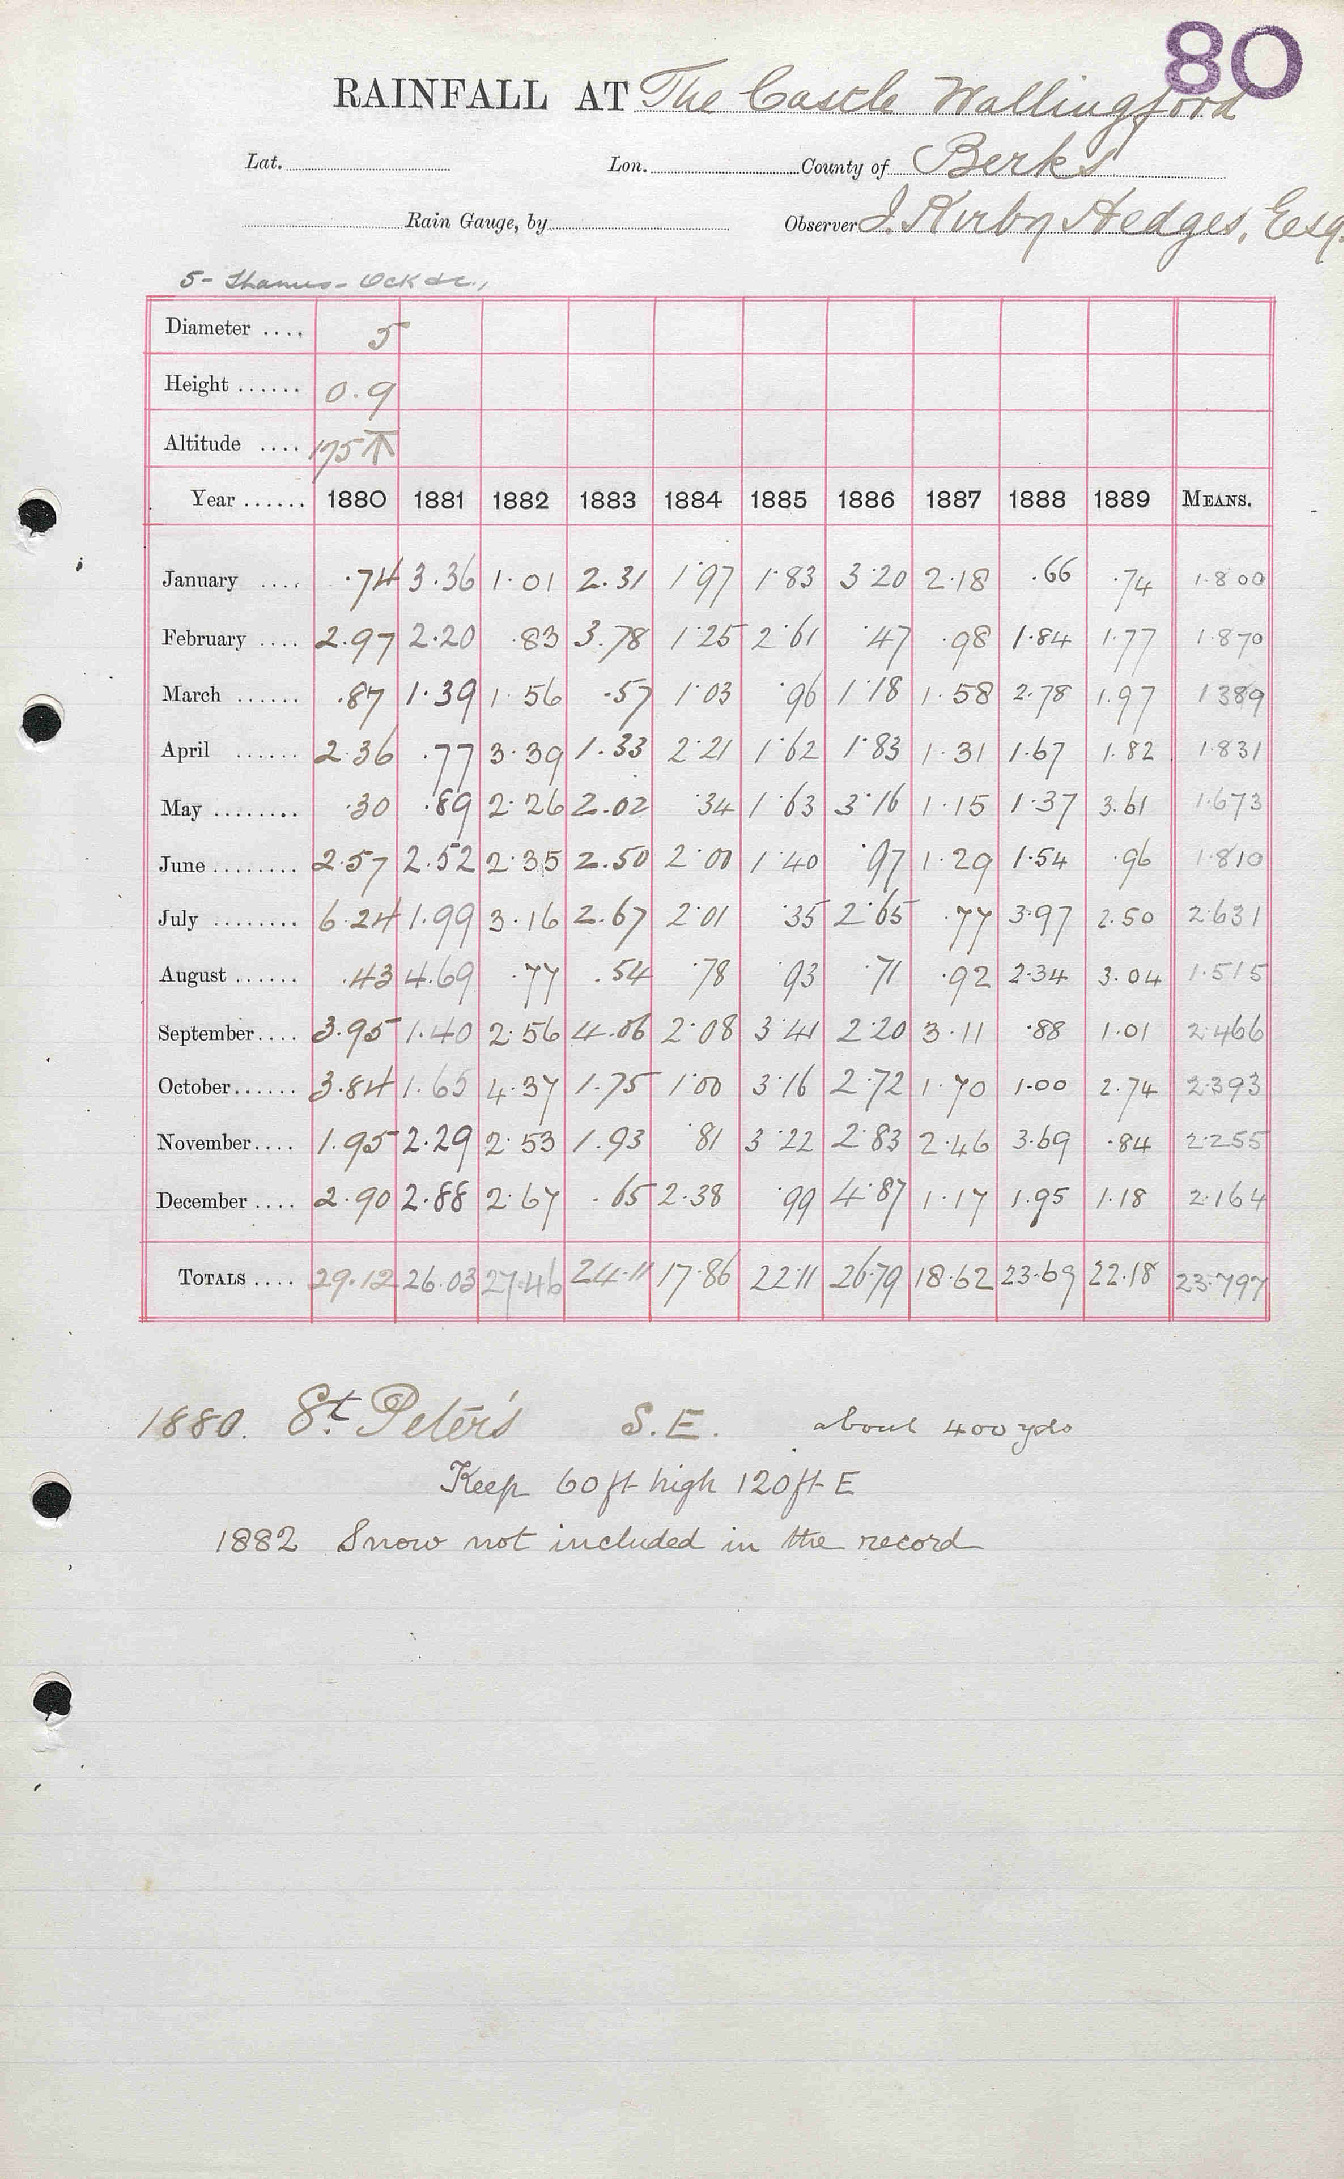 80
RAINFALL AT The Castle Wallingford
Lat. Lon. County of Berks
Rain Gauge, by Observer J. Kirby Hedges, Esq.
5- Thames - Ock &c.,
Diameter .... 5
Height ...... 0.9
Altitude .... 175
Year ...... 1880 1881 1882 1883 1884 1885 1886 1887 1888 1889 MEANS.
January .... .74 3.36 1.01 2.31 1.97 1.83 3.20 2.18 .66 .74 1.800
February .... 2.97 2.20 .83 3.78 1.25 2.61 .47 .98 1.84 1.77 1.870
March ...... .87 1.39 1.56 .57 1.03 .96 1.18 1.58 2.78 1.97 1389
April ...... 2.36 .77 3.39 1.33 2.21 1.62 1.83 1.31 1.67 1.82 1.831
May ........ .30 .89 2.26 2.02 .34 1.63 3.16 1.15 1.37 3.61 1.673
June ........ 2.57 2.52 2.35 2.50 2.00 1.40 .97 1.29 1.54 .96 1.810
July ........ 6.24 1.99 3.16 2.67 2.01 .35 2.65 .77 3.97 2.50 2.631
August ...... .43 4.69 .77 .54 .78 .93 .71 .92 2.34 3.04 1.515
September.... 3.95 1.40 2.56 4.06 2.08 3.41 2.20 3.11 .88 1.01 2.466
October...... 3.84 1.65 4.37 1.75 1.00 3.16 2.72 1.70 1.00 2.74 2.393
November.... 1.95 2.29 2.53 1.93 .81 3.22 2.83 2.46 3.69 .84 2.255
December .... 2.90 2.88 2.67 .65 2.38 .99 4.87 1.17 1.95 1.18 2.164
TOTALS .... 29.12 26.03 27.46 24.11 17.86 22.11 26.79 18.62 23.69 22.18 23.797
1880. St. Peter's S.E. about 400 yds
Keep 60 ft high 120 ft E
1882 Snow not included in the record